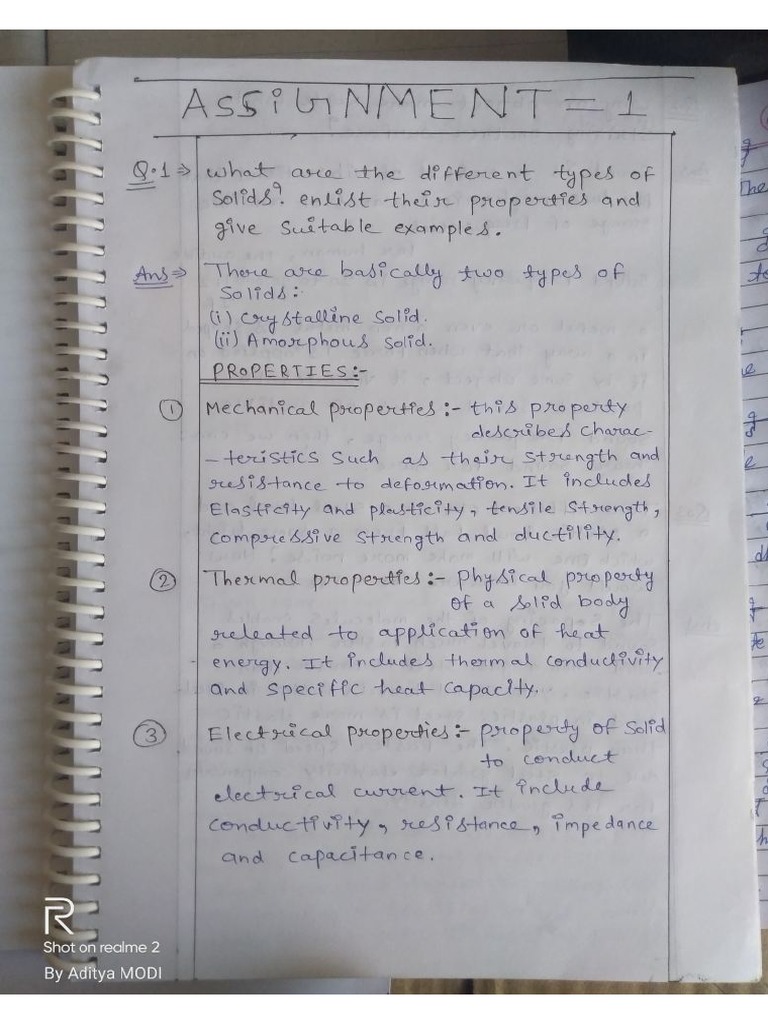 ASSIGNMENT = 1
Q.1⇒ What are the different types of
Solids? enlist their properties and
give suitable examples.
Ans⇒ There are basically two types of
Solids:
(i) Crystalline Solid.
(ii) Amorphous Solid.
PROPERTIES:-
① Mechanical properties :- this property
describes charac-
-teristics such as their strength and
resistance to deformation. It includes
Elasticity and plasticity, tensile strength,
compressive strength and ductility.
② Thermal properties :- Physical property
of a solid body
releated to application of heat
energy. It includes thermal conductivity
and specific heat capacity.
③ Electrical properties :- property of Solid
to conduct
electrical current. It include
conductivity, resistance, impedance
and capacitance.
R
Shot on realme 2
By Aditya MODI